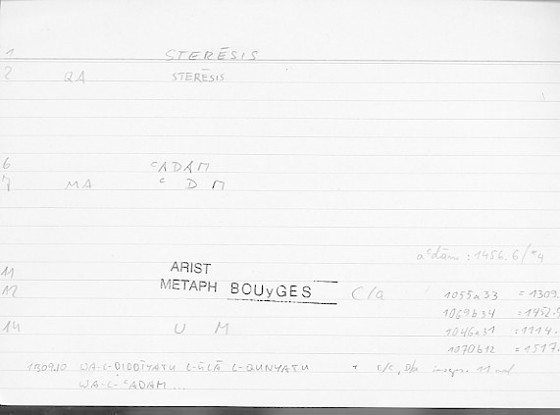 1 STERĒSIS
2 QA STERĒSIS
6 ᶜADAM
7 MA ᶜ D M
aᶜdām : 1456.6/*9
11 ARIST
12 METAPH BOUyGES C/a 1055a33 = 1309.
1069b34 = 1452.5
1046a31 = 1114.
14 U M 1070b12 = 1517.
WA-L-ḌIDDĪYATU L-ŪLĀ L-QUNYATU + c/c, Db 11
WA-L-ᶜADAM ...